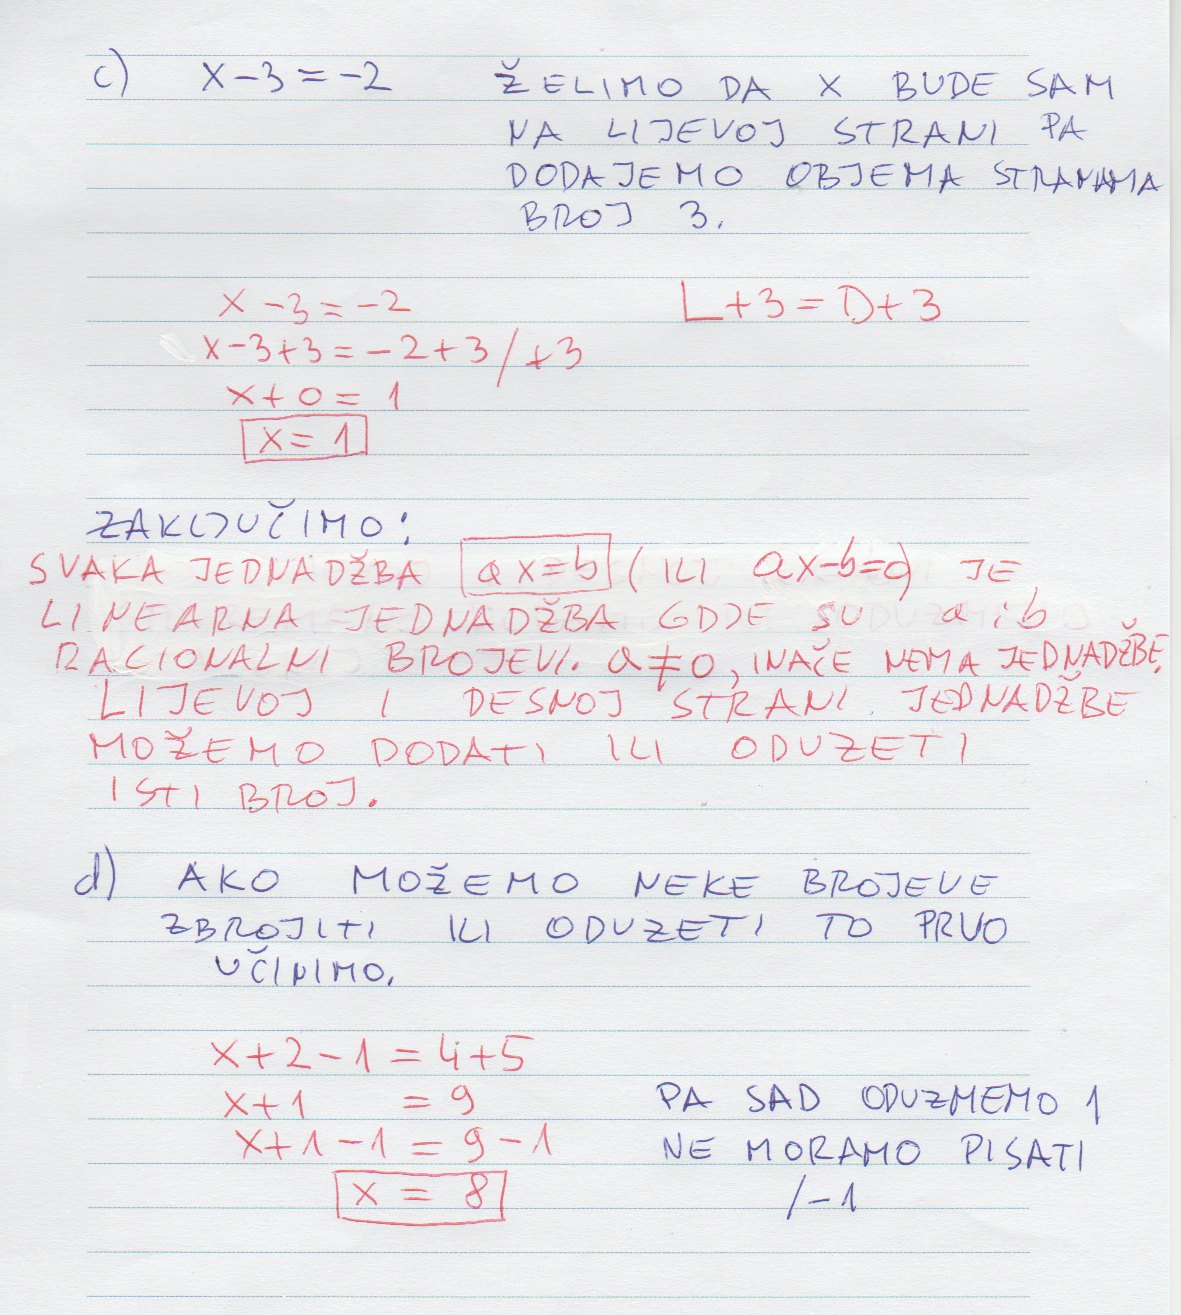 c) x-3=-2 ŽELIMO DA X BUDE SAM
NA LIJEVOJ STRANI PA
DODAJEMO OBJEMA STRANAMA
BROJ 3.
x-3=-2 L+3=D+3
x-3+3=-2+3/+3
x+0=1
x=1
ZAKLJUČIMO:
SVAKA JEDNADŽBA ax=b (ILI ax-b=0) JE
LINEARNA JEDNADŽBA GDJE SU a i b
RACIONALNI BROJEVI. a≠0, INAČE NEMA JEDNADŽBE.
LIJEVOJ I DESNOJ STRANI JEDNADŽBE
MOŽEMO DODATI ILI ODUZETI
ISTI BROJ.
d) AKO MOŽEMO NEKE BROJEVE
ZBROJITI ILI ODUZETI TO PRVO
UČINIMO.
x+2-1=4+5
x+1 =9 PA SAD ODUZMEMO 1
x+1-1=9-1 NE MORAMO PISATI
x = 8 /-1